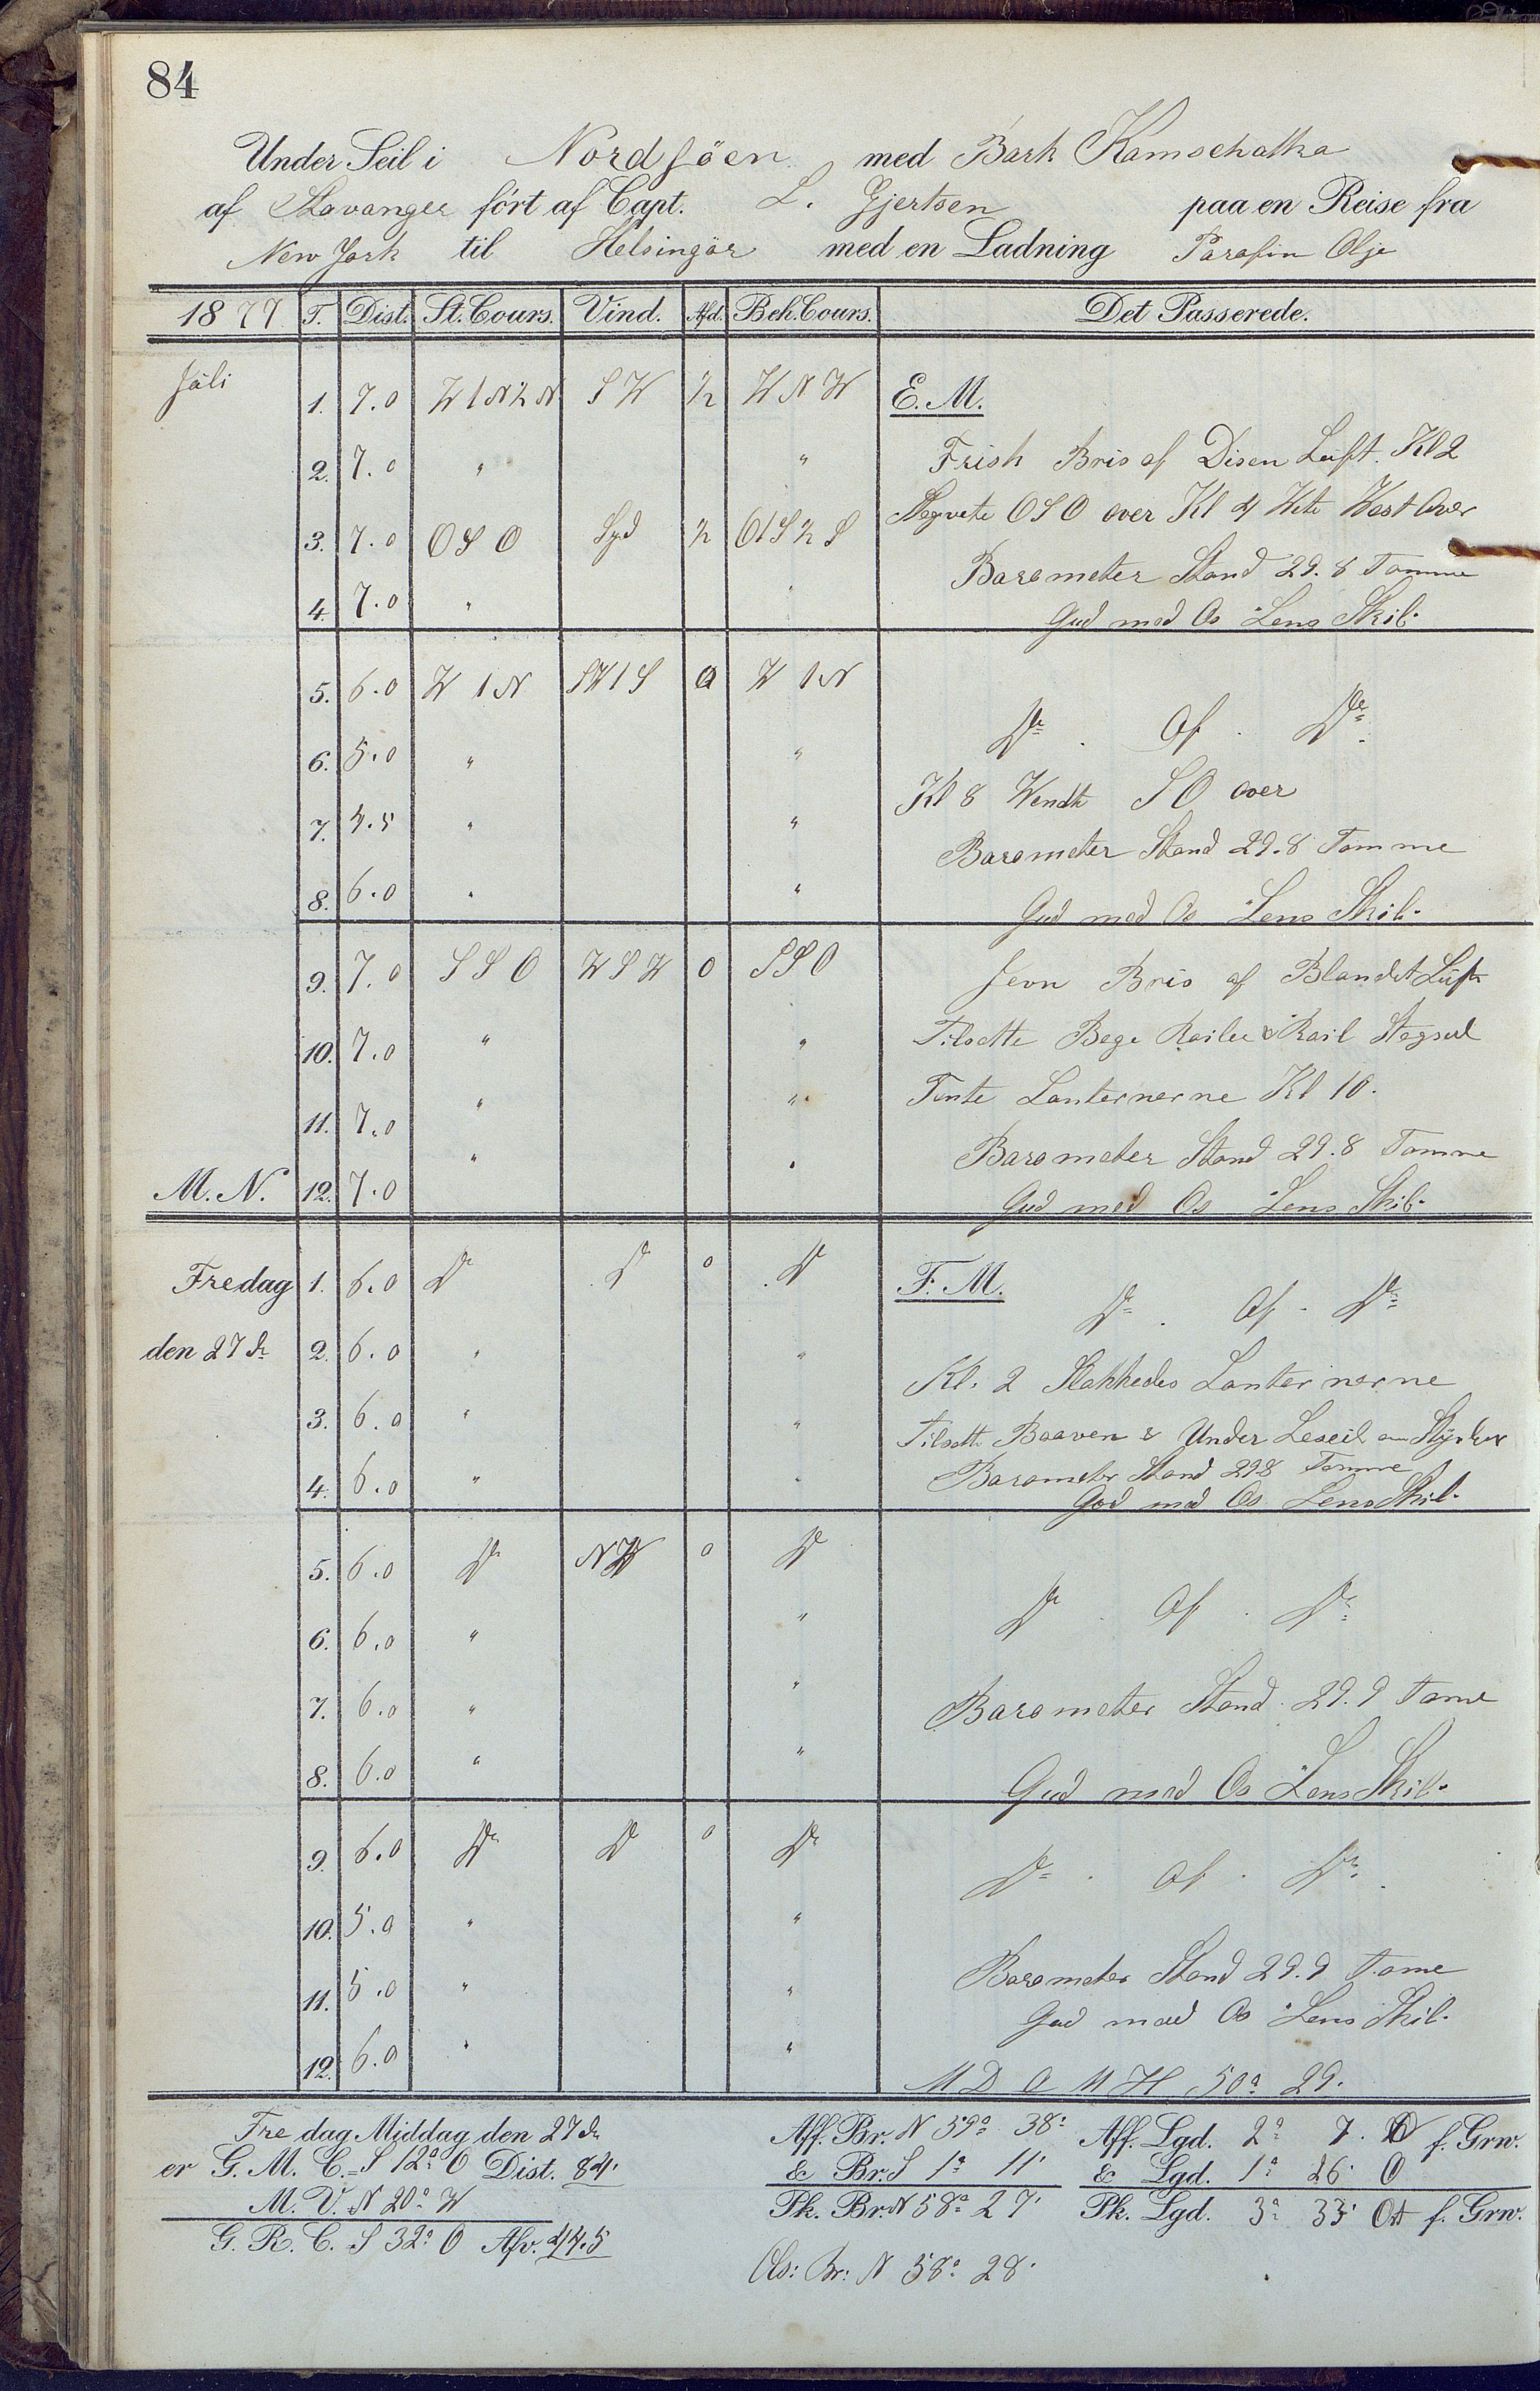 84
Under Seil i Nordsöen med Bark Kamschatka
af Stavanger fört af Capt. L. Gjertsen paa en Reise fra
New York til Helsingör med en Ladning Parafin Olje
1877 T. Dist. St. Cours. Vind. Afd. Beh. Cours. Det Passerede.
Juli 1. 7.0 W 1 N ½ N S W ½ W N W E. M.
2. 7.0 " " Frisk Bris af Disen Luft. Kl 2
3. 7.0 O S O Syd ½ O 1 S ½ S O S O over Kl 4 West Over
Barometer Stand 29.8 Tomme
4. 7.0 " " Gud med Os Lens Skib.
5. 6.0 W 1 N SW 1 S 0 W 1 N
Do. Af. Do.
6. 5.0 " "
Kl 8 Wendt S O over
7. 4.5 " "
Barometer Stand 29.8 Tomme
8. 6.0 " " Gud med Os Lens Skib.
9. 7.0 S S O W S W 0 S S O Jevn Bris af Blandet Luft
10. 7.0 " " Tilsatte
11. 7.0 " " Tente Lanternerne Kl 10.
Barometer Stand 29.8 Tomme
M. N. 12. 7.0 " " Gud med Os Lens Skib.
Fredag 1. 6.0 Do Do 0 Do F. M. Do. Af. Do
den 27 de 2. 6.0 " " Kl. 2 Slukkedes Lanternerne
3. 6.0 " " Tilsatte & Under Leseil om Styrbor
Barometer Stand 29.8 Tomme
4. 6.0 " " Gud med Os Lens Skib.
5. 6.0 Do NW 0 Do
6. 6.0 " " Do. Af. Do
7. 6.0 " " Barometer Stand 29.9 Tome
8. 6.0 " " Gud med Os Lens Skib.
9. 6.0 Do Do 0 Do Do. Af. Do.
10. 5.0 " "
11. 5.0 " " Barometer Stand 29.9 Tome
Gud med Os Lens Skib.
12. 6.0 " " M D O M H 50° 29.
Fredag Middag den 27 de
er G. M. C. = S 12° O Dist. 84.
M. V. N 20° W
G. R. C. S 32° O Afv. 44.5
Aff. Br. N 59° 38'
& Br. S 1° 11'
Pk. Br. N 58° 27'
Obs: Br: N 58° 28'
Aff. Lgd. 2° 7' O f. Grw.
& Lgd. 1° 26' O
Pk. Lgd. 3° 33' Ost f. Grw.